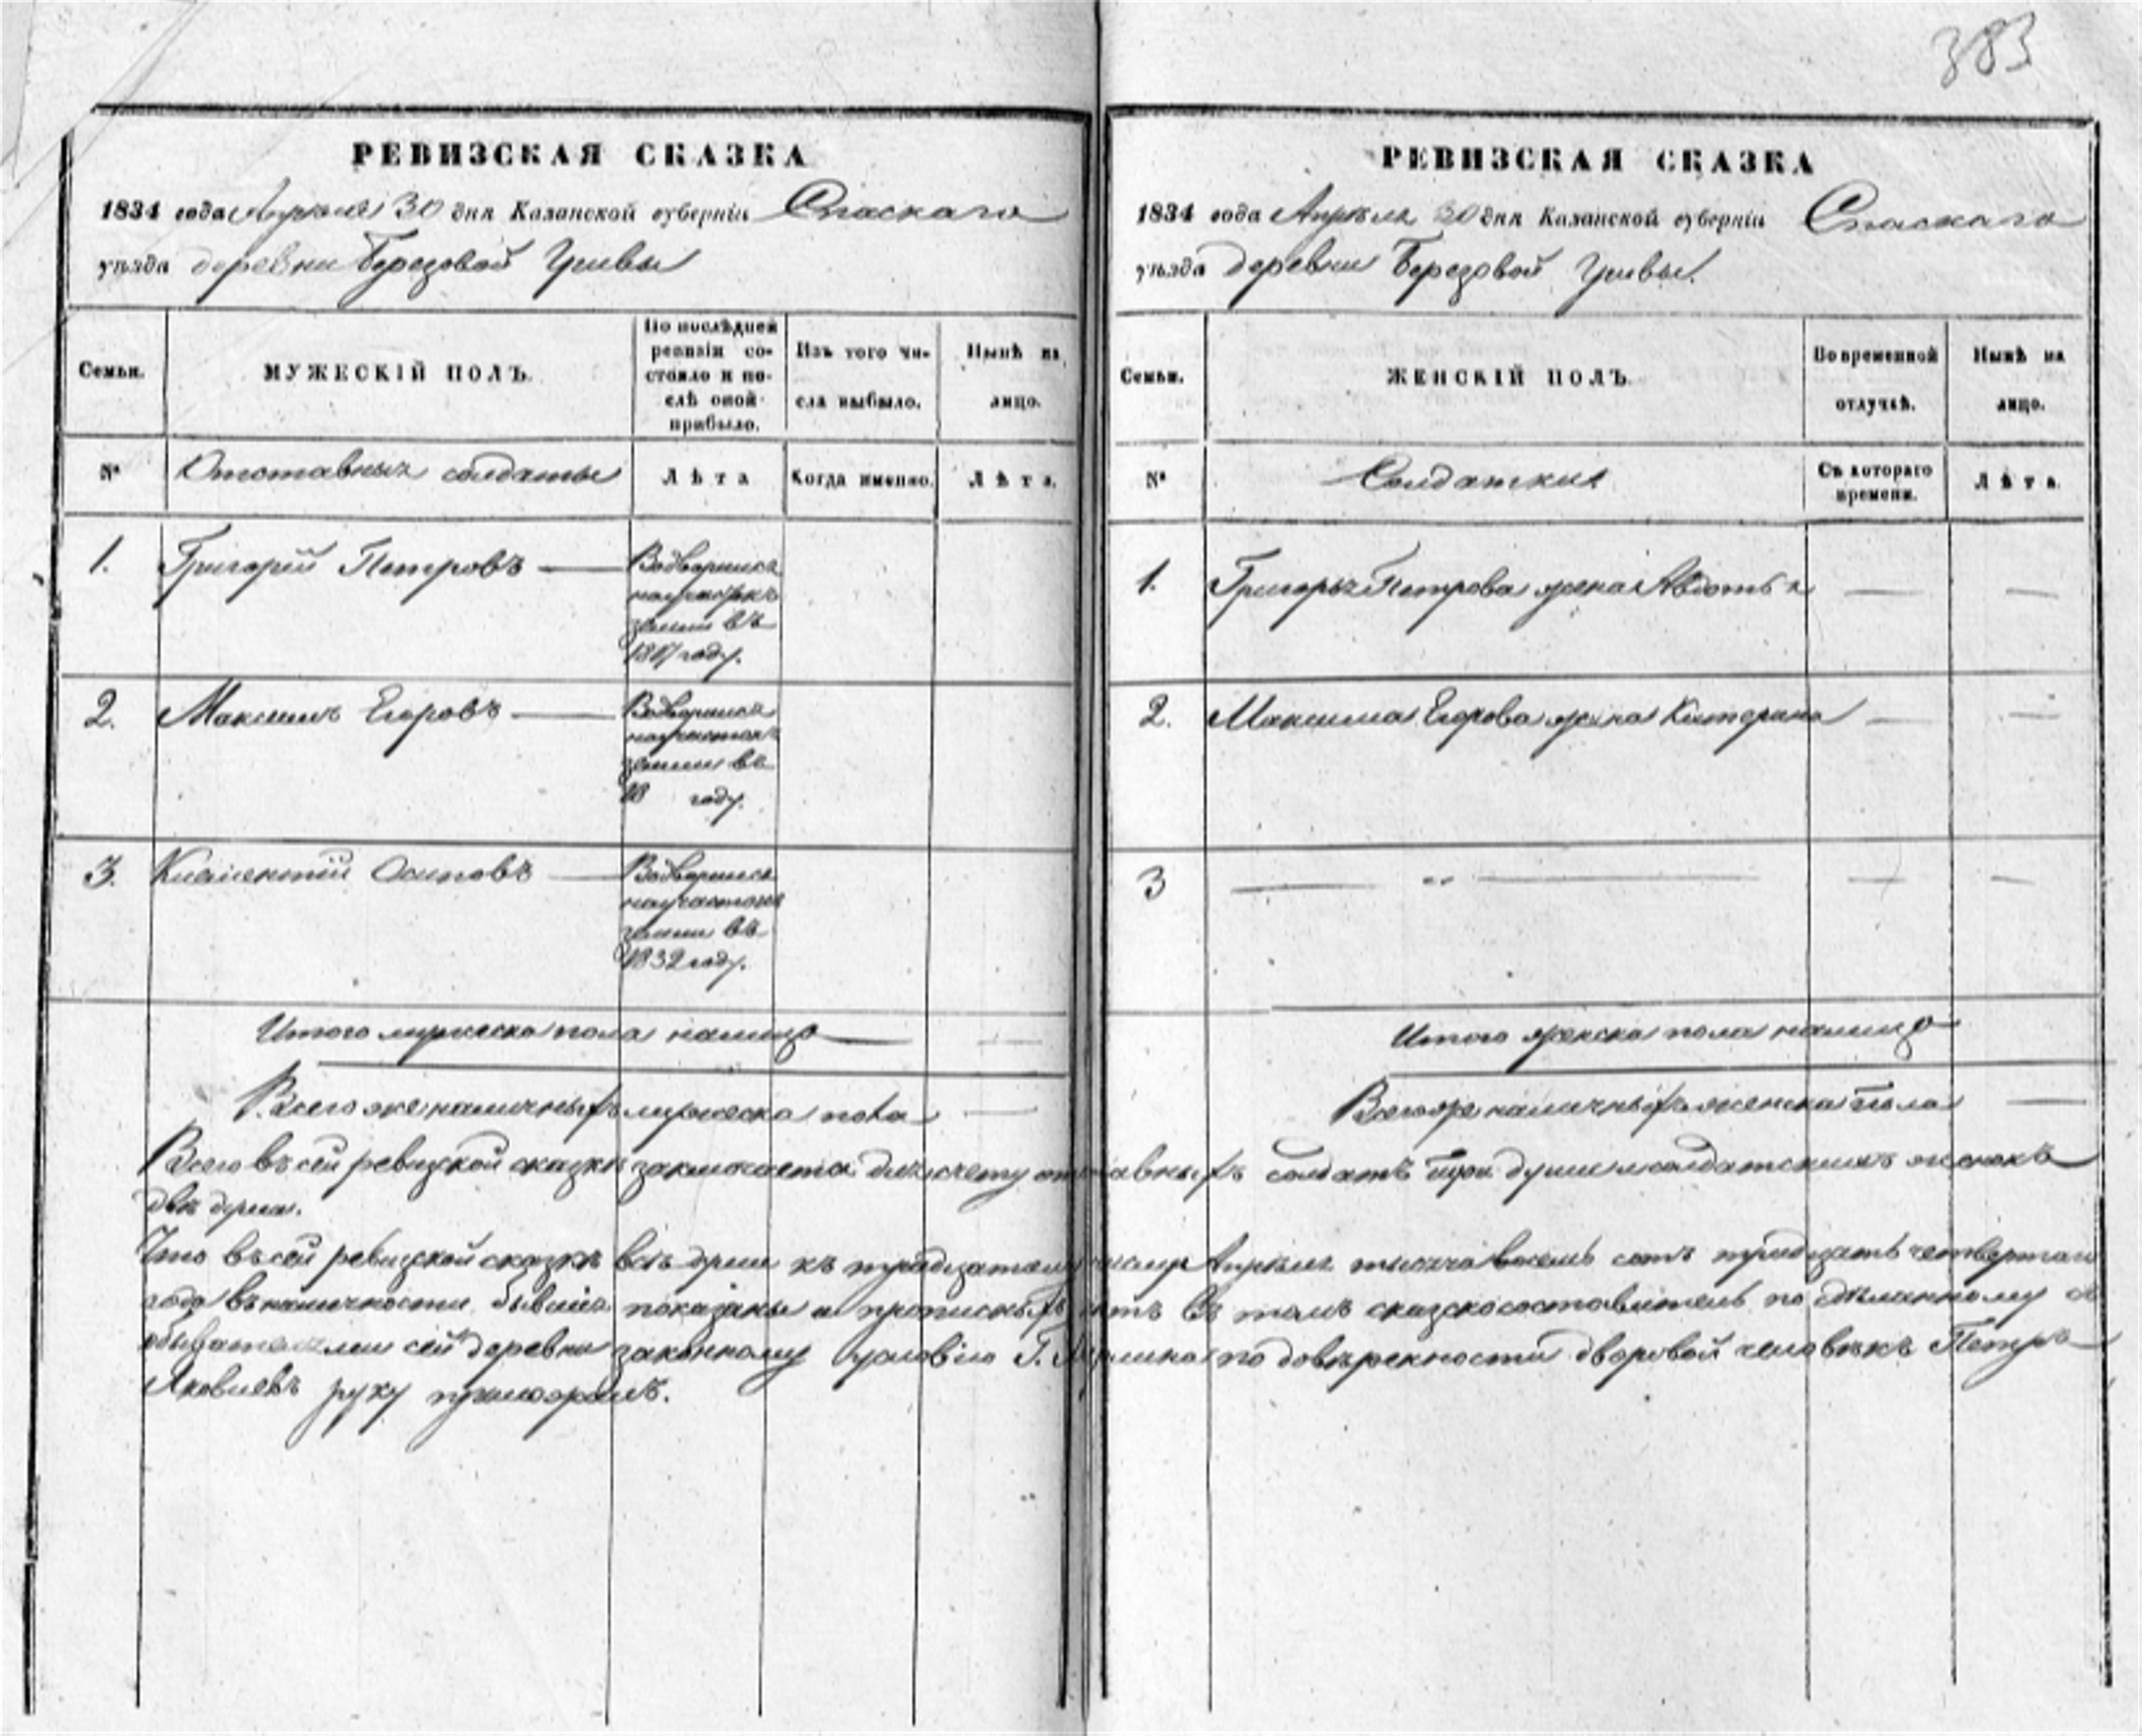 383
РЕВИЗСКАЯ СКАЗКА
1834 года Апреля 30 дня Казанской губерніи Спаскаго
уѣзда деревни Березовой Гривы
Семьи.
МУЖЕСКІЙ ПОЛЪ.
По послѣдней
ревизіи со-
стояло и по-
слѣ оной
прибыло.
Изъ того чи-
сла выбыло.
Нынѣ на
лицо.
№
Отставныя солдаты
Лѣта
Когда именно.
Лѣта.
1.
Григорій Петровъ —
Водворился
на участкѣ
земли въ
году.
2.
Максимъ Егоровъ —
Водворился
на участкѣ
земли въ
18 году.
3.
Климентій Осиповъ —
Водворился
на участкѣ
земли въ
1832 году.
Итого мужеска пола налицо — —
Всего же наличныхъ мужеска пола —
РЕВИЗСКАЯ СКАЗКА
1834 года Апрѣля 30 дня Казанской губерніи Спаскаго
уѣзда деревни Березовой Гривы.
Семьи.
ЖЕНСКІЙ ПОЛЪ.
Во временной
отлучкѣ.
Нынѣ на
лицо.
№
Солдатки
Съ котораго
времени.
Лѣта.
1.
Григорья Петрова жена Авдотья — —
2.
Максима Егорова жена Катерина — —
3
— " — — —
Итого женска пола налицо
Всего же наличныхъ женска пола —
Всего въ сей ревизской сказкѣ заключается для счету отставныхъ солдатъ три души и солдатскихъ женокъ
двѣ души.
Что въ сей ревизской сказкѣ всѣ души къ тридцатому числу Апрѣля тысяча восемь сотъ тридцать четвертаго
года въ наличности бывшія показаны и прописныхъ нѣтъ Въ томъ сказкосоставитель по сдѣланному съ
обывателями сей деревни законному условію Г. по довѣренности дворовой человѣкъ Петръ
Яковлевъ руку приложилъ.